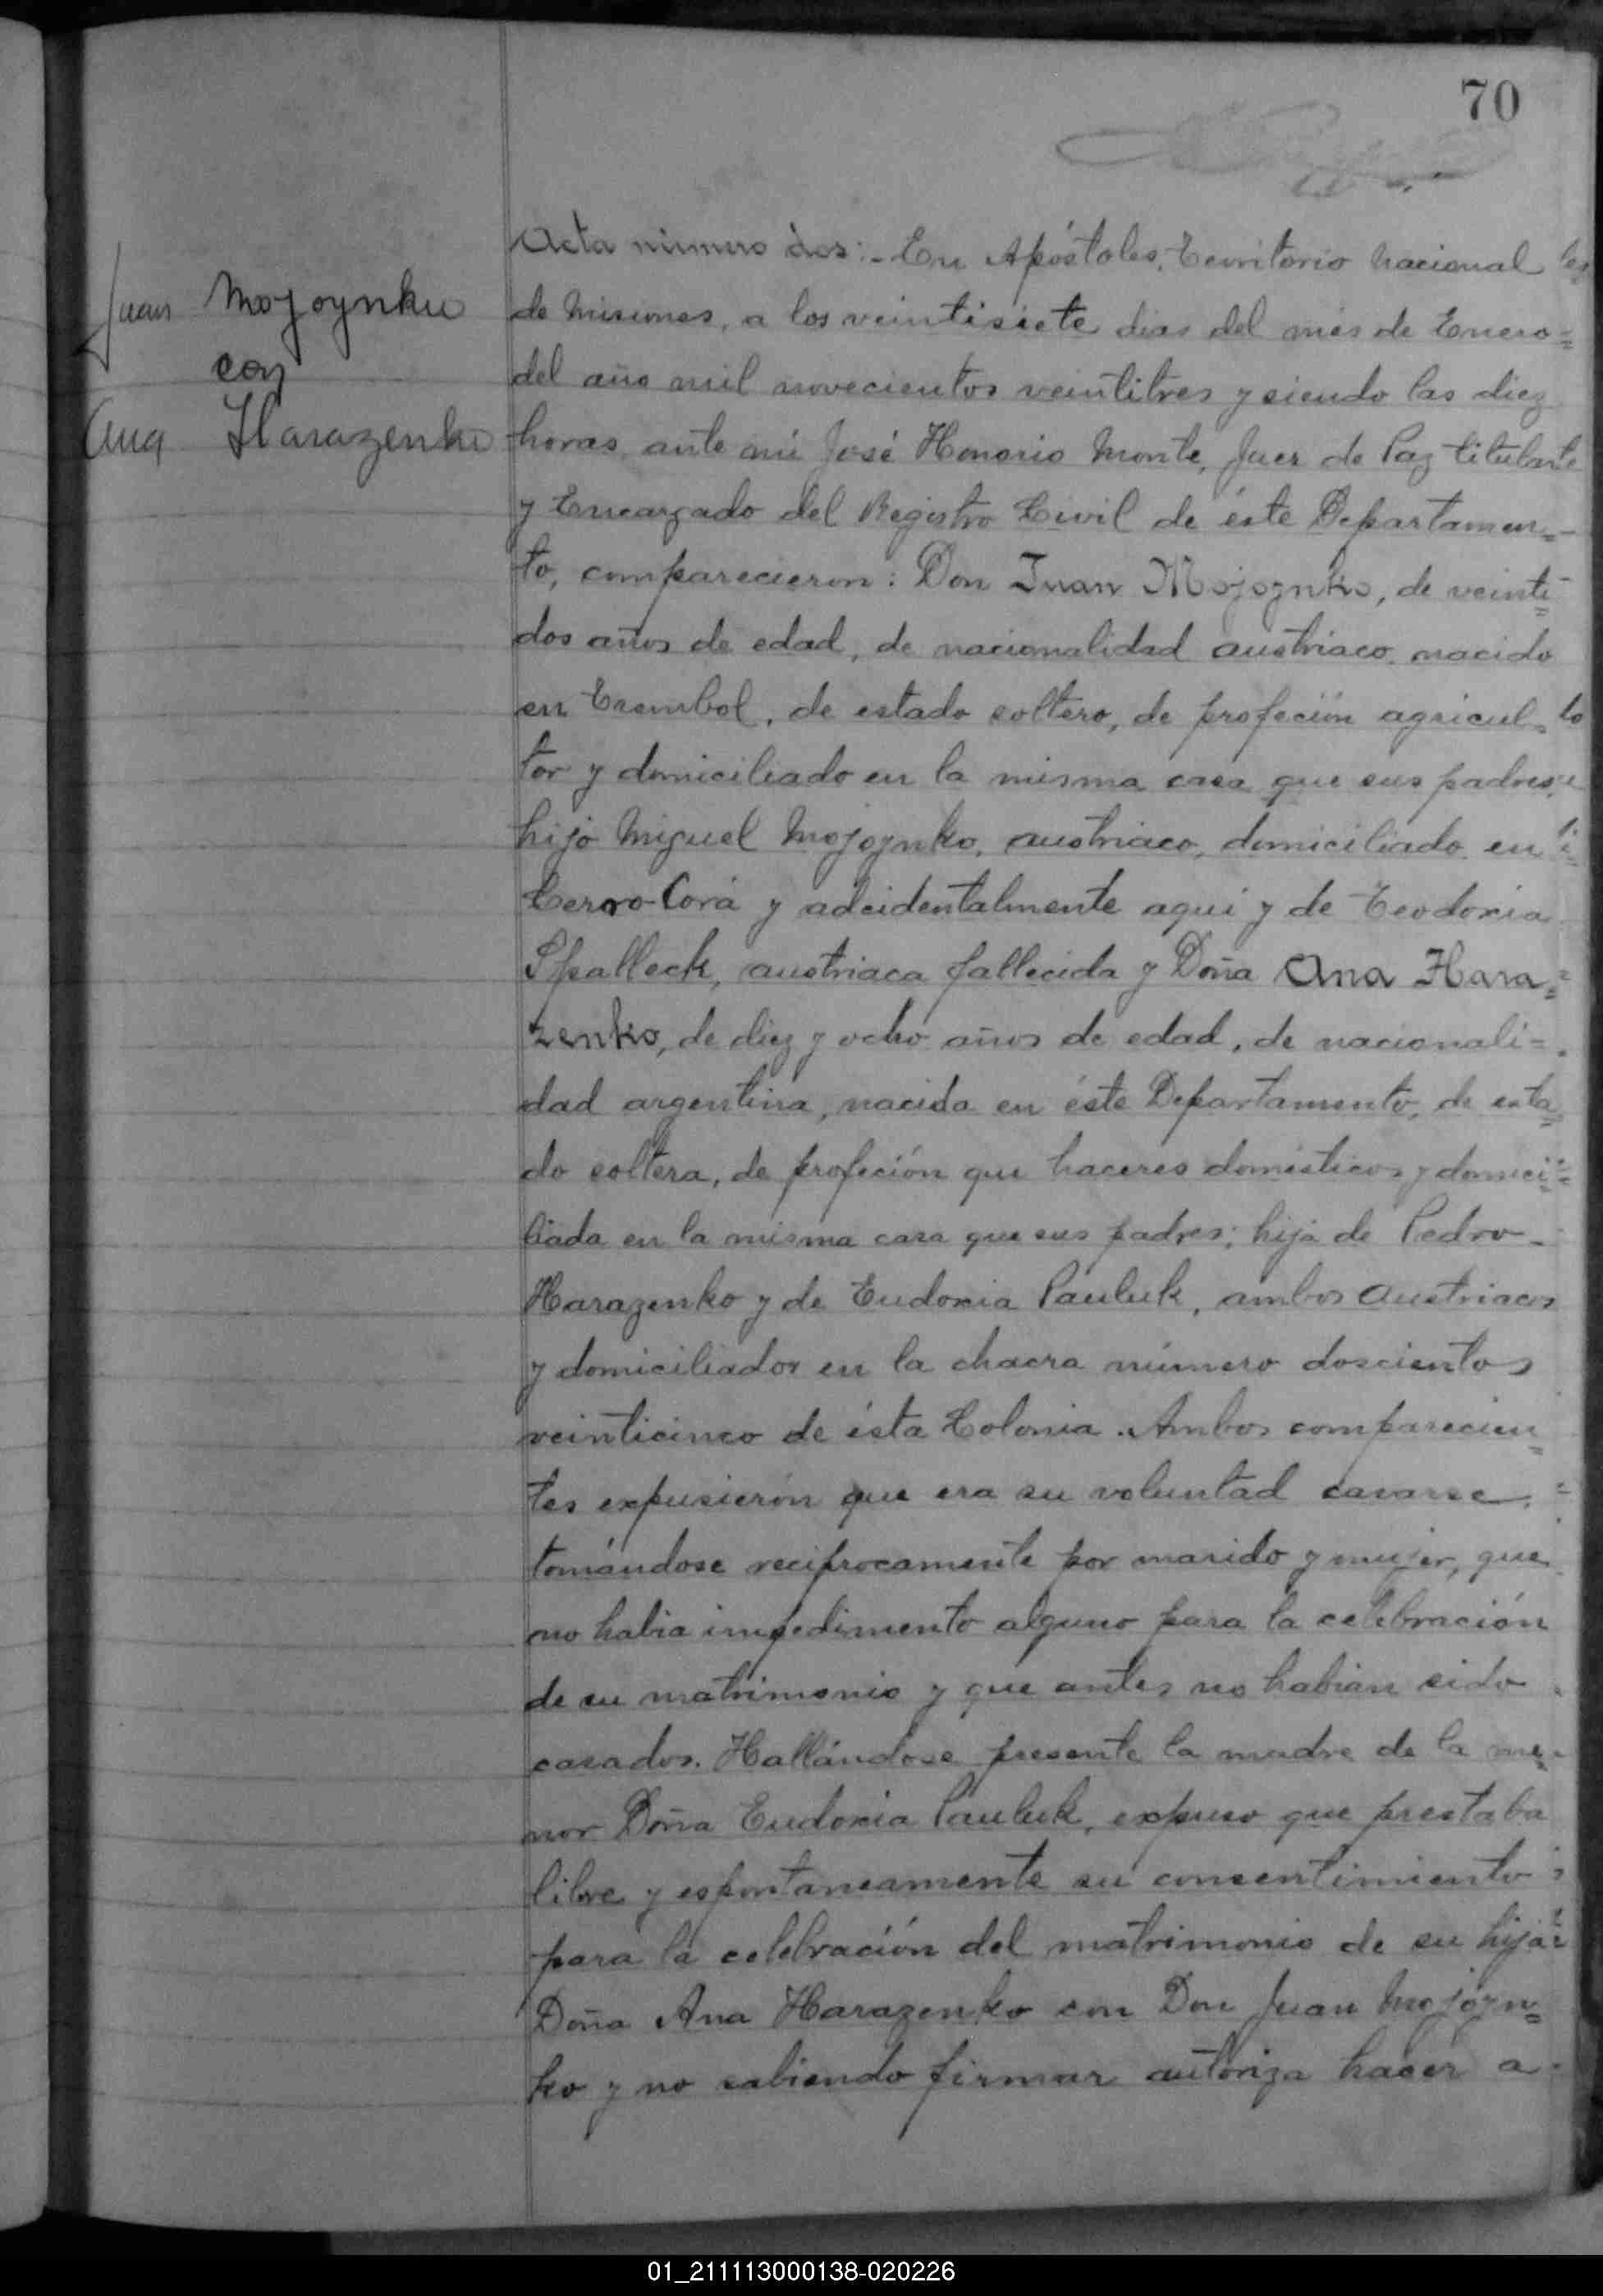 70
Juan Mojoynko
con
Ana Harazenko
Acta número dos:- En Apóstoles, Territorio nacional
de Misiones, a los veintisiete dias del mes de Enero=
del año mil novecientos veintitres y siendo las diez
horas, ante mí José Honorio Monte, Juez de Paz titular
y Encargado del Registro Civil de éste Departamen=
to, comparecieron: Don Juan Mojoynko, de veinti=
dos años de edad, de nacionalidad austriaco, nacido
en Trembol, de estado soltero, de profeción agricul=
tor y domiciliado en la misma casa que sus padres,
hijo Miguel Mojoynko, austriaco, domiciliado en
Cerro-Corá y adcidentalmente aqui y de Teodoxia
Spalleck, austriaca fallecida y Doña Ana Hara=
zenko, de diez y ocho años de edad, de nacionali=
dad argentina, nacida en éste Departamento, de esta=
do soltera, de profeción que haceres domésticos y domici=
liada en la misma casa que sus padres; hija de Pedro-
Harazenko y de Eudoxia Pauluk, ambos austriacos
y domiciliados en la chacra número doscientos
veinticinco de ésta Colonia. Ambos comparecien=
tes expusierón que era su voluntad casarse,
tomándose reciprocamente por marido y mujer, que
no habia impedimento alguno para la celebración
de su matrimonio y que antes no habian sido
casados. Hallándose presente la madre de la me=
nor Doña Eudoxia Pauluk, expuso que prestaba
libre y espontaneamente su consentimiento
para la celebración del matrimonio de su hija
Doña Ana Harazenko con Don Juan Mojoyn=
ko y no sabiendo firmar autoriza hacer a
01_211113000138-020226